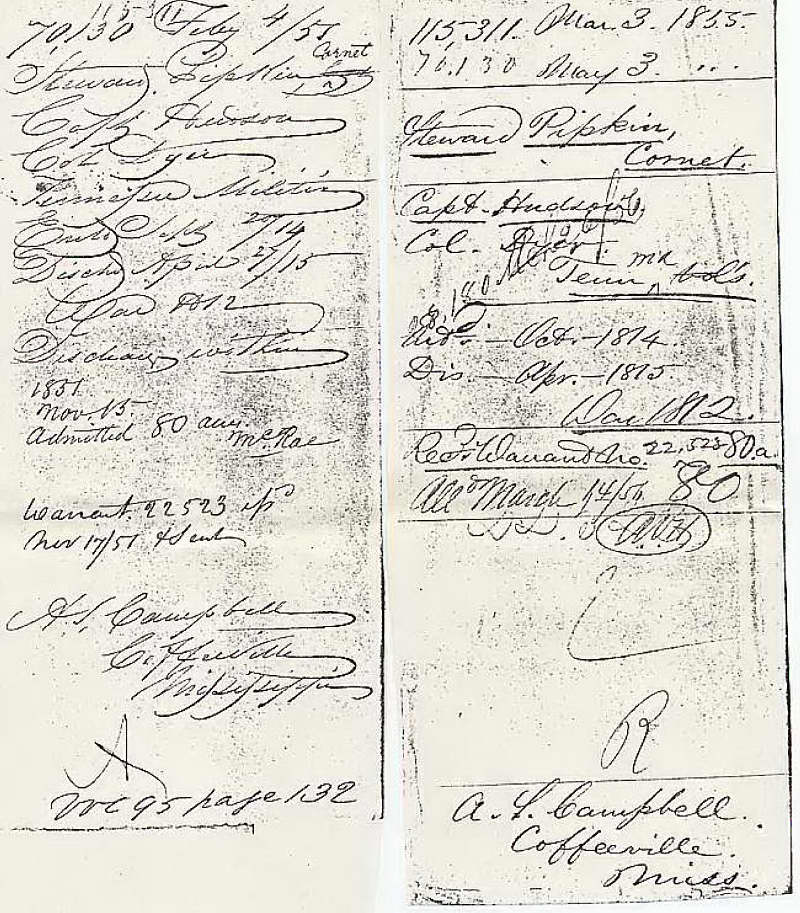 115311
70,130 Feby 4/51
Cornet
Steward Pipkin
Capt Hudson
Col Dyer
Tennessee Militia
Sept 20/14
Dischd April 27/15
War 1812
Discharge within
1851
Nov. 15.
Admitted 80 acres
McRae
Warrant 22523
Nov 17/51 & Sent
A. S. Campbell
Coffeeville
Mississippi
A
Vol 95 page 132
115,311. Mar. 3. 1855.
70,130 May 3. "
Steward Pipkin,
Cornet.
Capt. Hudson,
Col. Dyer
Tenn, Vols.
Oct. 1814.
Dis. — Apr. — 1815
War 1812.
Warrant No. 22,523 80 a.
March 14/56 80
R
A. S. Campbell.
Coffeeville.
Miss.